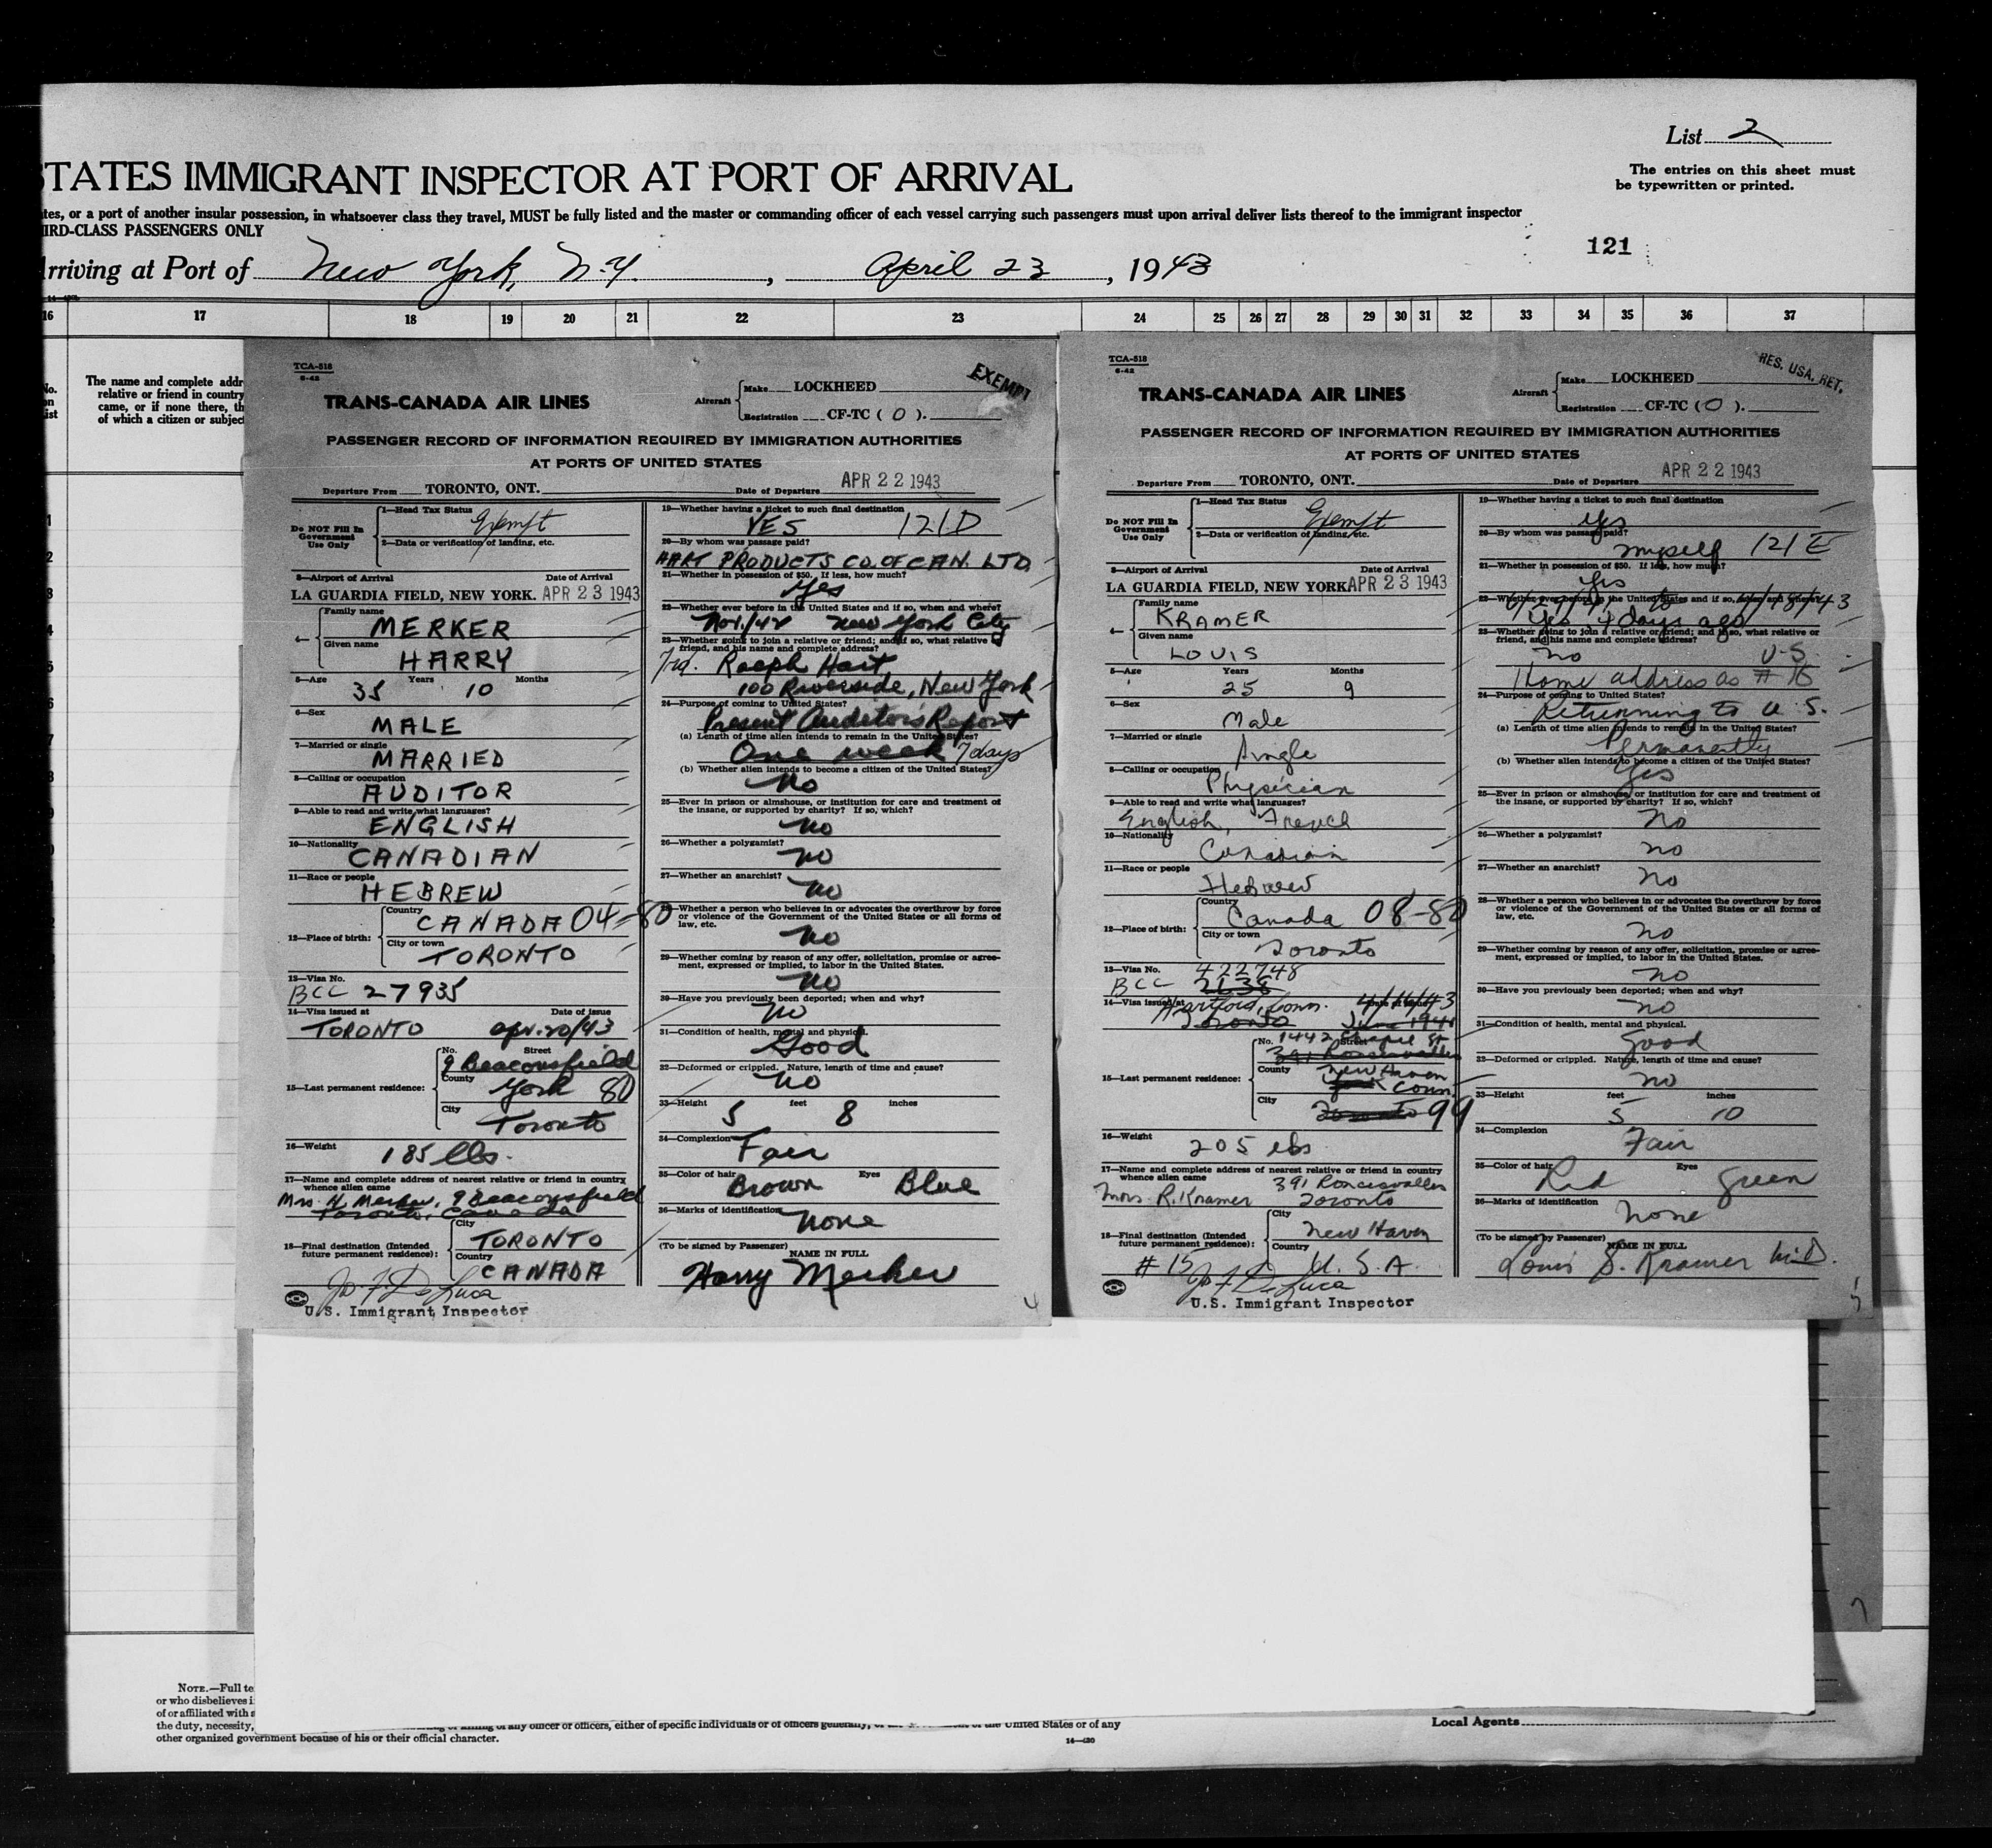 List 2
The entries on this sheet must
be typewritten or printed.
STATES IMMIGRANT INSPECTOR AT PORT OF ARRIVAL
tes, or a port of another insular possession, in whatsoever class they travel, MUST be fully listed and the master or commanding officer of each vessel carrying such passengers must upon arrival deliver lists thereof to the immigrant inspector
IRD-CLASS PASSENGERS ONLY
121
rriving at Port of New York, N.Y. , April 23 , 1943
16 17 18 19 20 21 22 23 24 25 26 27 28 29 30 31 32 33 34 35 36 37
No.
on
list
The name and complete addr
relative or friend in country
came, or if none there, th
of which a citizen or subject
TCA-518
6-42
EXEMPT
TRANS-CANADA AIR LINES
Aircraft
Make LOCKHEED
Registration CF-TC ( O ).
PASSENGER RECORD OF INFORMATION REQUIRED BY IMMIGRATION AUTHORITIES
AT PORTS OF UNITED STATES
Departure From TORONTO, ONT. Date of Departure APR 22 1943
Do NOT Fill In
Government
Use Only
1—Head Tax Status
Exempt
2—Data or verification of landing, etc.
3—Airport of Arrival Date of Arrival
LA GUARDIA FIELD, NEW YORK. APR 23 1943
4—
Family name
MERKER
Given name
HARRY
5—Age Years Months
35 10
6—Sex
MALE
7—Married or single
MARRIED
8—Calling or occupation
AUDITOR
9—Able to read and write what languages?
ENGLISH
10—Nationality
CANADIAN
11—Race or people
HEBREW
12—Place of birth:
Country
CANADA 04-80
City or town
TORONTO
13—Visa No.
BCC 27935
14—Visa issued at Date of issue
TORONTO Apr. 20/43
15—Last permanent residence:
No. Street
9 Beaconsfield
County
York 80
City
Toronto
16—Weight
185 lbs.
17—Name and complete address of nearest relative or friend in country
whence alien came
Mrs. H. Merker, 9 Beaconsfield
Toronto, Canada
18—Final destination (Intended
future permanent residence):
City
TORONTO
Country
CANADA
Jo. F. De Luca
U.S. Immigrant Inspector
19—Whether having a ticket to such final destination
YES 121D
20—By whom was passage paid?
HART PRODUCTS CO. OF CAN. LTD.
21—Whether in possession of $50. If less, how much?
Yes
22—Whether ever before in the United States and if so, when and where?
Nov./42 New York City
23—Whether going to join a relative or friend; and if so, what relative or
friend, and his name and complete address?
Frd. Ralph Hart
100 Riverside, New York
24—Purpose of coming to United States?
Present Auditors Report
(a) Length of time alien intends to remain in the United States?
One week 7 days
(b) Whether alien intends to become a citizen of the United States?
No
25—Ever in prison or almshouse, or institution for care and treatment of
the insane, or supported by charity? If so, which?
No
26—Whether a polygamist?
No
27—Whether an anarchist?
No
28—Whether a person who believes in or advocates the overthrow by force
or violence of the Government of the United States or all forms of
law, etc.
No
29—Whether coming by reason of any offer, solicitation, promise or agree-
ment, expressed or implied, to labor in the United States.
No
30—Have you previously been deported; when and why?
No
31—Condition of health, mental and physical.
Good
32—Deformed or crippled. Nature, length of time and cause?
No
33—Height feet inches
5 8
34—Complexion
Fair
35—Color of hair Eyes
Brown Blue
36—Marks of identification
None
(To be signed by Passenger)
NAME IN FULL
Harry Merker
4
TCA-518
6-42
RES. USA, RET.
TRANS-CANADA AIR LINES
Aircraft
Make LOCKHEED
Registration CF-TC ( O ).
PASSENGER RECORD OF INFORMATION REQUIRED BY IMMIGRATION AUTHORITIES
AT PORTS OF UNITED STATES
Departure From TORONTO, ONT. Date of Departure APR 22 1943
Do NOT Fill In
Government
Use Only
1—Head Tax Status
Exempt
2—Data or verification of landing, etc.
3—Airport of Arrival Date of Arrival
LA GUARDIA FIELD, NEW YORK APR 23 1943
4—
Family name
KRAMER
Given name
LOUIS
5—Age Years Months
25 9
6—Sex
Male
7—Married or single
Single
8—Calling or occupation
Physician
9—Able to read and write what languages?
English, French
10—Nationality
Canadian
11—Race or people
Hebrew
12—Place of birth:
Country
Canada 08-80
City or town
Toronto
13—Visa No.
422748
BCC 2638
14—Visa issued at Date of issue
Hartford, Conn.
Toronto June 1941
15—Last permanent residence:
No. Street
1442 Chapel St
391 Roncesvalles
County
New Haven
York Conn.
City
Toronto 99
16—Weight
205 lbs
17—Name and complete address of nearest relative or friend in country
whence alien came
391 Roncesvalles
Mrs. R. Kramer Toronto
18—Final destination (Intended
future permanent residence):
City
New Haven
Country
# 15 U. S. A.
Jo. F. De Luca
U.S. Immigrant Inspector
19—Whether having a ticket to such final destination
Yes
20—By whom was passage paid?
myself 121 E
21—Whether in possession of $50. If less, how much?
Yes
22—Whether ever before in the United States and if so, when and where?
Yes, 4 days ago
23—Whether going to join a relative or friend; and if so, what relative or
friend, and his name and complete address?
No U-S.
Home address as #
24—Purpose of coming to United States?
Returning to U. S.
(a) Length of time alien intends to remain in the United States?
Permanently
(b) Whether alien intends to become a citizen of the United States?
Yes
25—Ever in prison or almshouse, or institution for care and treatment of
the insane, or supported by charity? If so, which?
No
26—Whether a polygamist?
No
27—Whether an anarchist?
No
28—Whether a person who believes in or advocates the overthrow by force
or violence of the Government of the United States or all forms of
law, etc.
No
29—Whether coming by reason of any offer, solicitation, promise or agree-
ment, expressed or implied, to labor in the United States.
No
30—Have you previously been deported; when and why?
No
31—Condition of health, mental and physical.
Good
32—Deformed or crippled. Nature, length of time and cause?
No
33—Height feet inches
5 10
34—Complexion
Fair
35—Color of hair Eyes
Red Green
36—Marks of identification
None
(To be signed by Passenger)
NAME IN FULL
Louis S. Kramer M.D.
5
7
NOTE.—Full te
or who disbelieves i
of or affiliated with
the duty, necessity, any officer or officers, either of specific individuals or of officers generally, of the United States or of any
other organized government because of his or their official character.
14—430
Local Agents